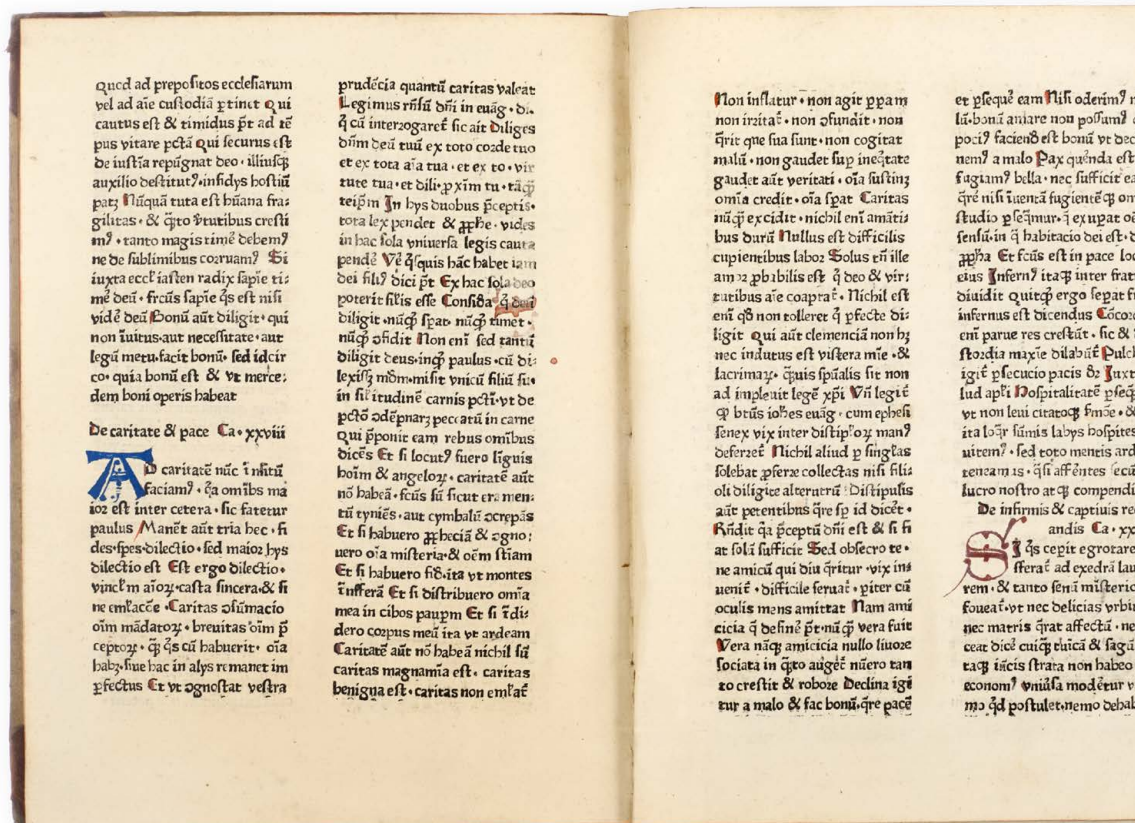 Quod ad prepositos ecclesiarum
vel ad aīe custodiā ꝑtinet Qui
cautus est & timidus pt̄ ad tē
pus vitare pctā Qui securus est
de iusticia repugnat deo · illiusqꝫ
auxilio destitutꝰ·infidys hostiū
patꝫ Nūquā tuta est hūana fra⹀
gilitas · & q̄to v̄tutibus cresti
mꝰ · tanto magis timē debemꝰ
ne de sublimibus corruamꝰ Si
iuxta eccl̄iasten radix sapīe ti⹀
mē deū · frc̄us sapīe q̄s est nisi
vidē deū Bonū aūt diligit · qui
non īuitus·aut necessitate · aut
legū metu·facit bonū· sed idcir
co· quia bonū est & vt merce⹀
dem boni operis habeat
De caritate & pace Ca · xxviii
AD caritatē nūc ī nītū
faciamꝰ · q̄a omībs ma
ior est inter cetera · sic fatetur
paulus Manēt aūt tria hec · fi
des·spes·dilectio · sed maior hys
dilectio est Est ergo dilectio ·
vincl̄m aīoꝝ·casta sincera·& si
ne emlacōe · Caritas ɔsūmacio
oīm mādatoꝝ · breuitas oīm p̄
ceptoꝝ · q̄ q̄s cū habuerit · oīa
habꝫ·siue hac in alys remanet im
ꝑfectus Et vt ɔgnostat vestra
prudēcia quantū caritas valeat
Legimus rn̄su dn̄i in euāg · di·
q̄ cū interrogaret̄ sic ait Diliges
dn̄m deū tuū ex toto corde tuo
et ex tota aīa tua · et ex to · vir
tute tua·et dili·ꝓxīm tu·tāq̄
teip̄m In hys duobus p̄ceptis·
tota lex pendet & ꝓph̄e · vides
in hac sola vniuersa legis causa
pendē Vē q̄squis hāc habet iam
dei filiꝰ dici pt̄ Ex hac sola deo
poterit sil̄is esse Consid̄a q̄ deū
diligit ·nūq̄ spat̄· nūq̄ timet ·
nūq̄ ɔfidit Non enī sed tantū
diligit deus·inq̄ paulus ·cū di⹀
lexissꝫ mōm·misit vnicū filiū su·
in sil̄itudinē carnis pctī·vt de
pctō ɔdēpnarꝫ peccatū in carne
Qui p̄ponit eam rebus omībus
dicēs Et si locutꝰ fuero līguis
hoīm & angeloꝝ · caritatē aūt
nō habeā · fcūs sū sicut era men⹀
tū tyniēs · aut cymbalū ɔcrepās
Et si habuero ꝓph̄eciā & ɔgno⹀
uero oīa misteria·& oēm stīam
Et si habuero fid̄·ita vt montes
īnfferā Et si distribuero omīa
mea in cibos paupm Et si īdi⹀
dero corpus meū ita vt ardeam
Caritatē aūt nō habeā nichil sū
caritas magnamīa est · caritas
benigna est · caritas non eml̄at̄
Non inflatur · non agit ꝑꝑam
non irritat̄ · non ɔfundit · non
q̄rit que sua sunt · non cogitat
malū · non gaudet suꝑ ineqtate
gaudet aūt veritati · oīa sustinꝫ
omīa credit · oīa sꝑat Caritas
nūq̄ excidit · nichil enī amāti⹀
bus durū Nullus est difficilis
cupientibus labor Solus tn̄ ille
amor ꝓbabilis est q̄ deo & vir⹀
tutibus aīe coaptat̄ · Nichil est
enī qd̄ non tolleret q̄ ꝑfecte di⹀
ligit Qui aūt clemenciā non hꝫ
nec indutus est vistera mīe · &
lacrimaꝝ · q̄uis sp̄ualis sit non
adimpleuit legē xp̄i Vn̄ legit̄
q̄ btūs ioh̄es euāg · cum ephesi
senex vix inter distipl̄oꝝ manꝰ
deferret̄ Nichil aliud ꝑ singl̄as
solebat ꝓferre collectas nisi filī⹀
oli diligite alterutrū Distipulis
aūt petentibus q̄re sꝑ id dicēt ·
Rn̄dit q̄a p̄ceptū dn̄i est & si fi
at solū sufficit Sed obsecro te ·
ne amicū qui diu q̄ritur · vix in⹀
uenit̄ · difficile seruat̄ · ꝑiter cū
oculis mens amittat Nam ami
cicia q̄ definē pt̄·nūq̄ vera fuit
Vera nāq̄ amicicia nullo liuore
sociata in q̄to augēt̄ nūero tan
to crestit & robore Declina igī
tur a malo & fac bonū·q̄re pacē
et ꝑsequē eam Nisi oderimꝰ
lū·bonū amare non possumꝰ
pociꝰ faciend̄ est bonū vt dec
nemꝰ a malo Pax quēda est
fugiamꝰ bella · nec sufficit ea
q̄re nisi īuentā fugientēq̄ om
studio ꝑseq̄mur· q̄ exupat oē
sensū·in q̄ habitacio dei est·
ꝓph̄a Et fcūs est in pace loc
eius Infernꝰ itaq̄ inter frat
diuidit Quitq̄ ergo seꝑat f
infernus est dicendus Cōcor
enī parue res crestūt · sic &
stordia maxīe dilabūt̄ Pulch
igit̄ ꝑsecucio pacis dr̄ Iuxt
lud apl̄i Hospitalitatē ꝑseq
vt non leui citatoq̄ ẜmōe · &
ita loq̄r sūmis labys hospites
uitemꝰ · sed toto mentis ard
teneamus · q̄si affēntes secū
lucro nostro atq̄ compendi
De infirmis & captiuis re
andis Ca · xx
SI q̄s cepit egrotare
sferat̄ ad exedrā lau
rem · & tanto senū mīsteric
foueat̄·vt nec delicias vrbiū
nec matris q̄rat affectū · ne
ceat dicē cuiq̄ tuicā & sagū
taq̄ iācis strata non habeo
economꝰ vniūsa modētur v
mo qd̄ postulet·nemo dehab